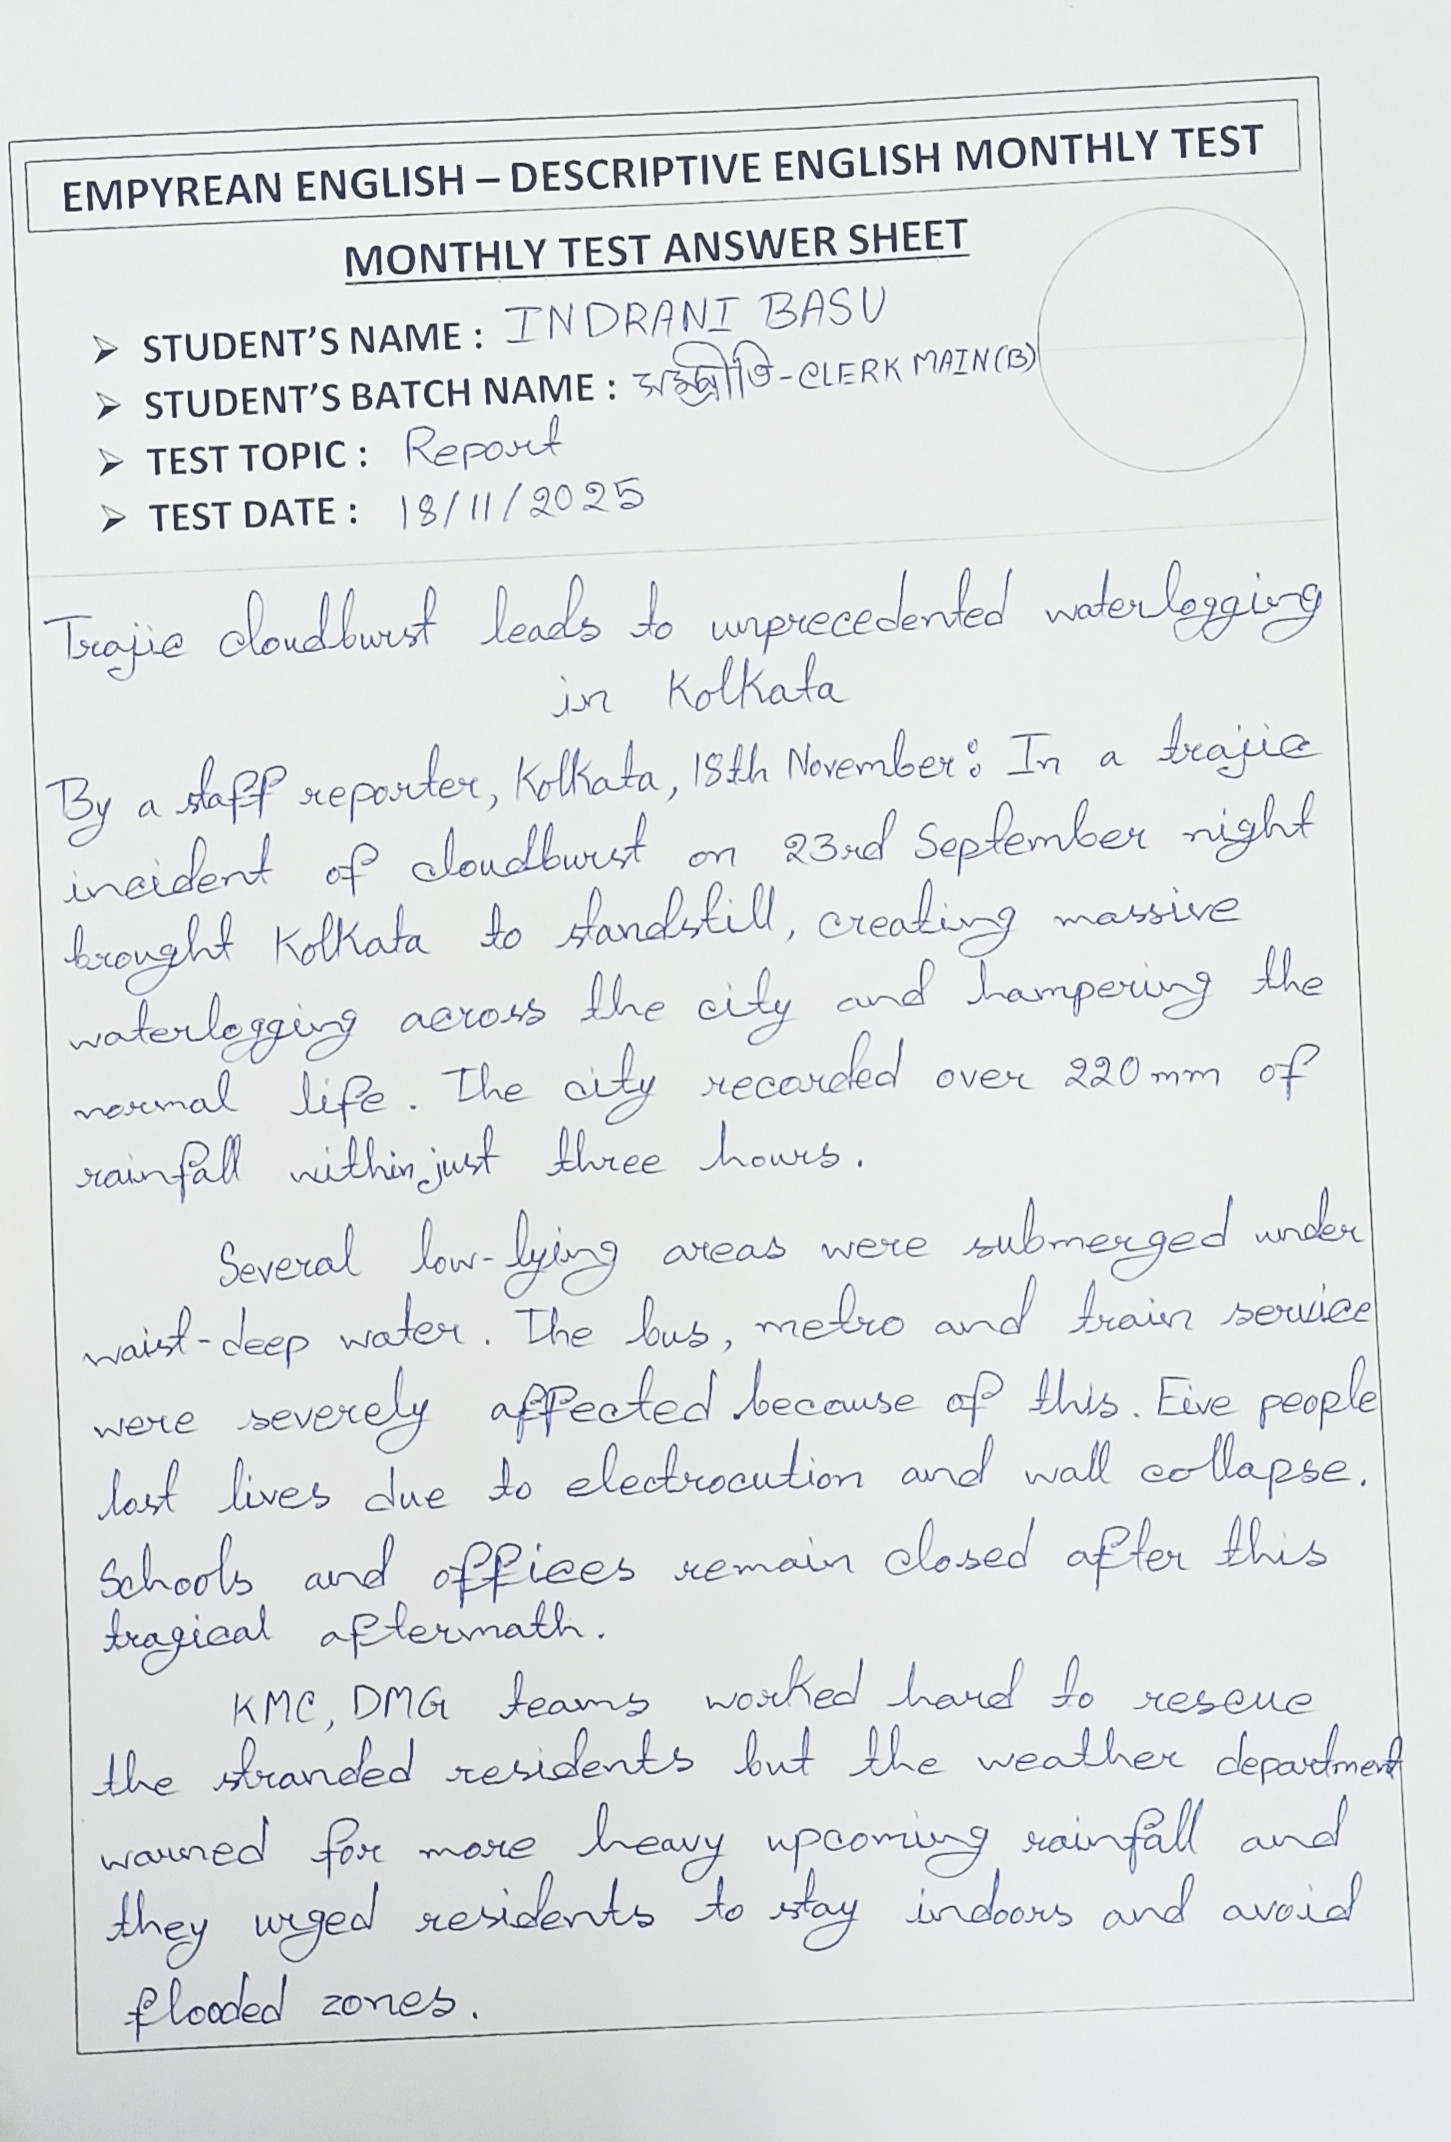 EMPYREAN ENGLISH – DESCRIPTIVE ENGLISH MONTHLY TEST
MONTHLY TEST ANSWER SHEET
➤ STUDENT'S NAME : INDRANI BASU
➤ STUDENT'S BATCH NAME : - CLERK MAIN(B)
➤ TEST TOPIC : Report
➤ TEST DATE : 18/11/2025
Trajic cloudburst leads to unprecedented waterlogging
in Kolkata
By a staff reporter, Kolkata, 18th November: In a trajic
incident of cloudburst on 23rd September night
brought Kolkata to standstill, creating massive
waterlogging across the city and hampering the
normal life. The city recorded over 220mm of
rainfall within just three hours.
Several low-lying areas were submerged under
waist-deep water. The bus, metro and train service
were severely affected because of this. Five people
lost lives due to electrocution and wall collapse.
Schools and offices remain closed after this
tragical aftermath.
KMC, DMG teams worked hard to rescue
the stranded residents but the weather department
warned for more heavy upcoming rainfall and
they urged residents to stay indoors and avoid
flooded zones.